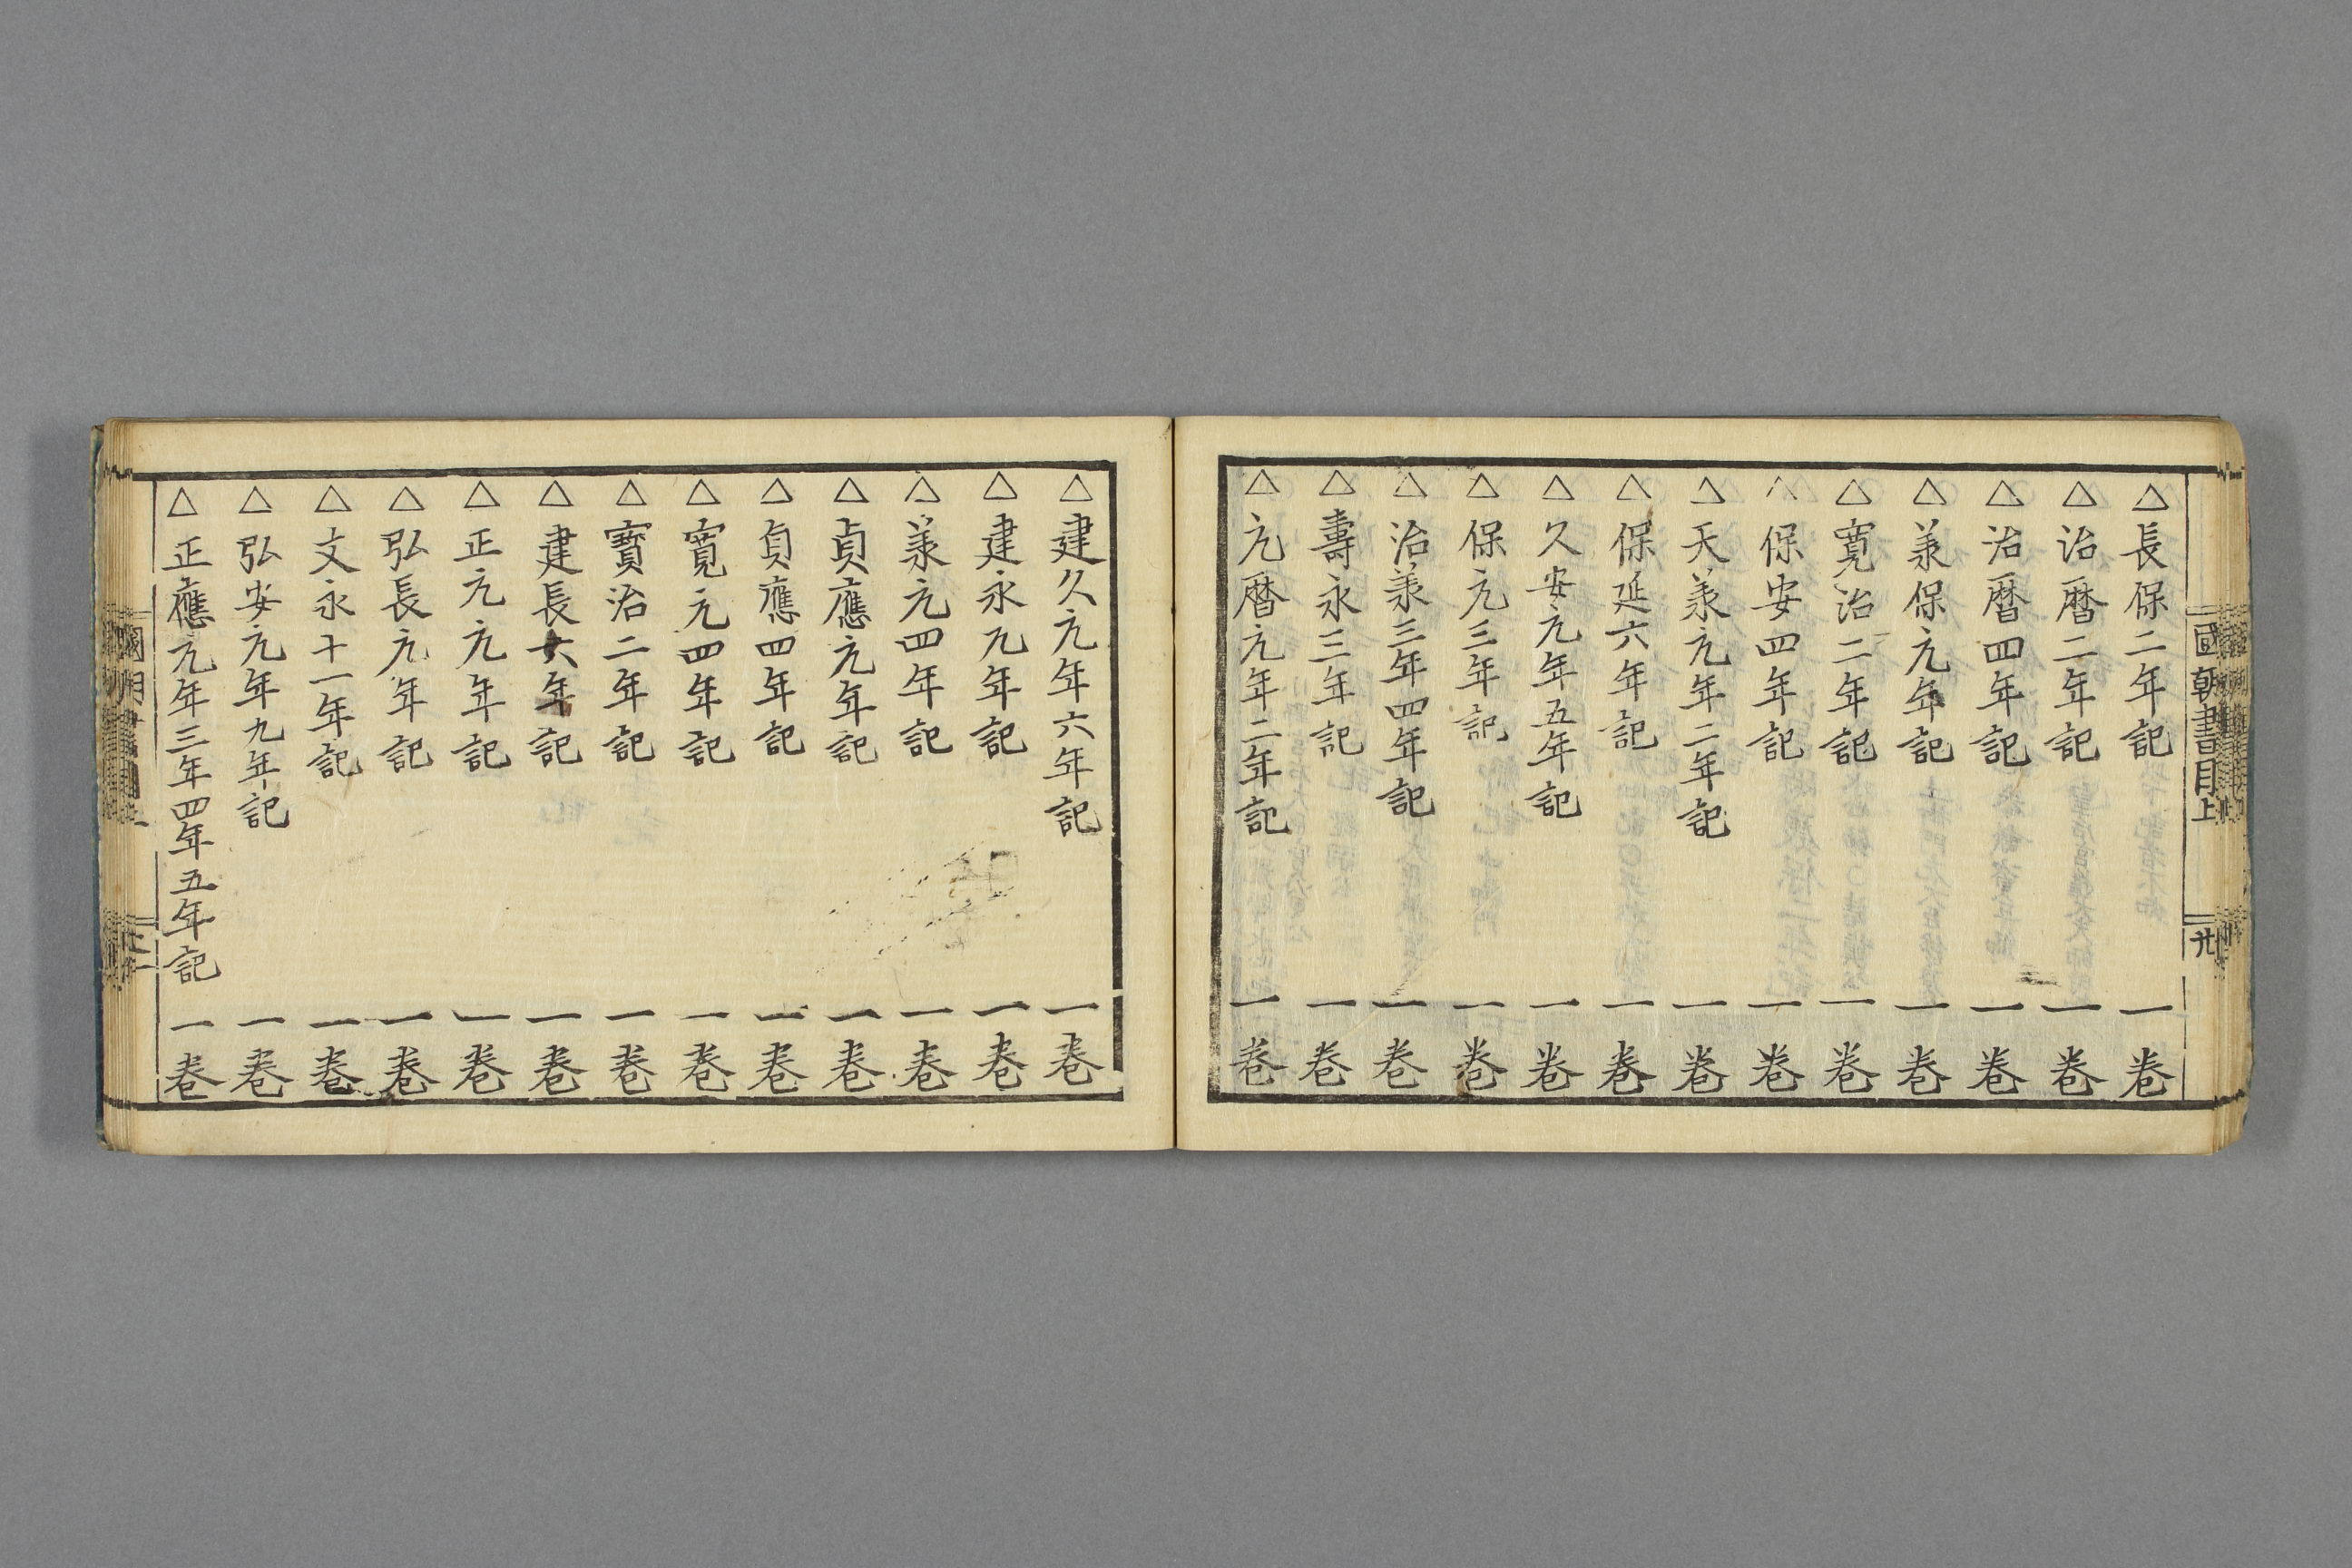 國朝書目上
廿
△長保二年記 一卷
△治暦二年記 一卷
△治暦四年記 一卷
△美保元年記 一卷
△寛治二年記 一卷
△保安四年記 一卷
△天羕元年二年記 一卷
△保延六年記 一卷
△久安元年五年記 一卷
△保元三年記 一卷
△治羕三年四年記 一卷
△壽永三年記 一卷
△元暦元年二年記 一卷
△建久元年六年記 一卷
△建永元年記 一卷
△羕元四年記 一卷
△貞應元年記 一卷
△貞應四年記 一卷
△寛元四年記 一卷
△寳治二年記 一卷
△建長六年記 一卷
△正元元年記 一卷
△弘長元年記 一卷
△文永十一年記 一卷
△弘安元年九年記 一卷
△正應元年三年四年五年記 一卷